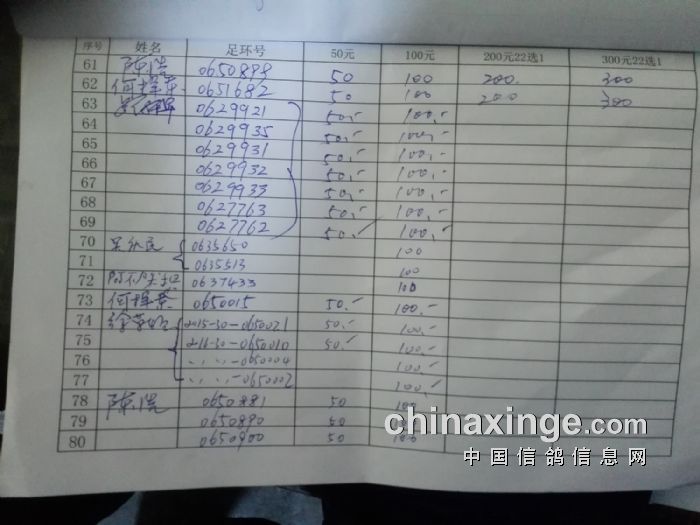 序号 姓名 足环号 50元 100元 200元22选1 300元22选1
61 陈浩 0650899 50 100 200 300
62 0651682 50 100 200 300
63 0629921 50.- 100.-
64 0629935 50.- 100.-
65 0629931 50.- 100.-
66 0629932 50.- 100.-
67 0629933 50.- 100.-
68 0627763 50.- 100.-
69 0627762 50.- 100.-
70 0635650 100
71 0635513 100
72 0637433 100
73 0650015 50.- 100.-
74 2015-30-0650021 50.- 100.-
75 2016-30-0650010 50.- 100.-
76 〃 〃-0650004 100.-
77 〃 〃-0650002 100.-
78 陈浩 0650881 50 100
79 0650890 50
80 0650900 50 100
chinaxinge.com
中国信鸽信息网